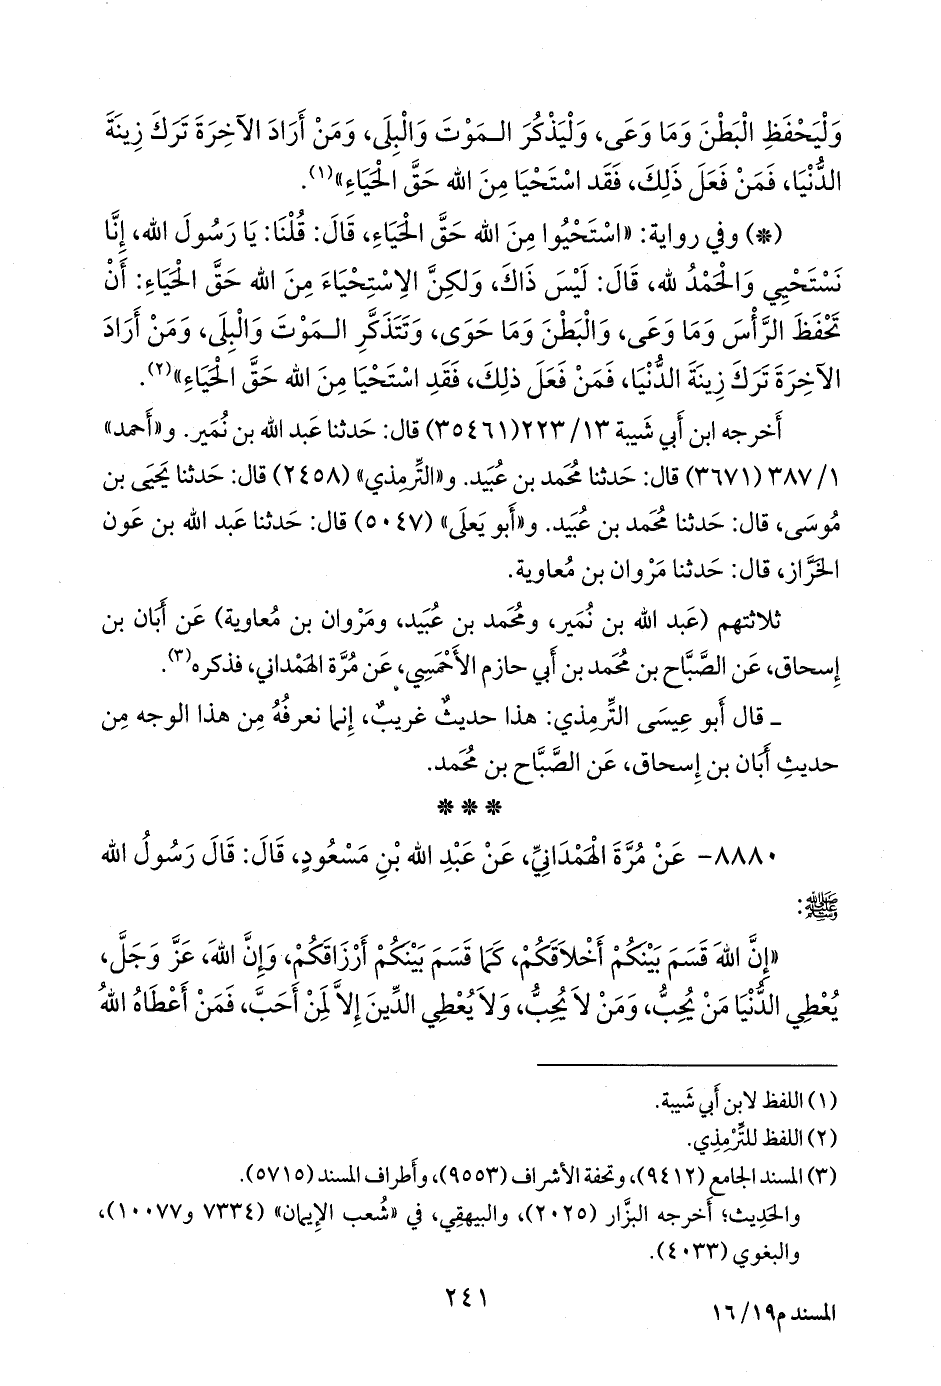 وَلْيَحْفَظِ الْبَطْنَ وَمَا وَعَى، وَلْيَذْكُرَ الـمَوْتَ وَالْبِلَى، وَمَنْ أَرَادَ الآخِرَةَ تَرَكَ زِينَةَ
الدُّنْيَا، فَمَنْ فَعَلَ ذَلِكَ، فَقَد اسْتَحْيَا مِنَ الله حَقَّ الْحَيَاءِ»(١).
(*) وفي رواية: «اسْتَحْيُوا مِنَ الله حَقَّ الحَيَاءِ، قَالَ: قُلْنَا: يَا رَسُولَ الله، إِنَّا
نَسْتَحْيِي وَالْحَمْدُ لله، قَالَ: لَيْسَ ذَاكَ، وَلَكِنَّ الاِسْتِحْيَاءَ مِنَ الله حَقَّ الْحَيَاءِ: أَنْ
تَحْفَظَ الرَّأْسَ وَمَا وَعَى، وَالْبَطْنَ وَمَا حَوَى، وَتَتَذَكَّرِ الـمَوْتَ وَالْبِلَى، وَمَنْ أَرَادَ
الآخِرَةَ تَرَكَ زِينَةَ الدُّنْيَا، فَمَنْ فَعَلَ ذلِكَ، فَقَدِ اسْتَحْيَا مِنَ الله حَقَّ الْحَيَاءِ»(٢).
أَخرجه ابن أَبي شَيبة ١٣/ ٢٢٣(٣٥٤٦١) قال: حَدثنا عَبد الله بن نُمَير. و«أَحمد»
١/ ٣٨٧ (٣٦٧١) قال: حَدثنا مُحمد بن عُبَيد. و«التِّرمِذي» (٢٤٥٨) قال: حَدثنا يَحيَى بن
مُوسَى، قال: حَدثنا مُحمد بن عُبَيد. و«أَبو يَعلَى» (٥٠٤٧) قال: حَدثنا عَبد الله بن عَون
الخَرَّاز، قال: حَدثنا مَرْوان بن مُعاوية.
ثلاثتهم (عَبد الله بن نُمَير، ومُحمد بن عُبَيد، ومَرْوان بن مُعاوية) عَن أَبَان بن
إِسحاق، عَن الصَّبَّاح بن مُحمد بن أَبي حازم الأَحْمَسِي، عَن مُرَّة الهَمْداني، فذكره(٣).
ـ قال أَبو عِيسَى التِّرمِذي: هذا حديثٌ غريبٌ، إِنما نعرفُهُ مِن هذا الوجه مِن
حديثِ أَبَان بن إِسحاق، عَن الصَّبَّاح بن مُحمد.
* * *
٨٨٨٠- عَنْ مُرَّةَ الهَمْدَانِيِّ، عَنْ عَبْدِ الله بْنِ مَسْعُودٍ، قَالَ: قَالَ رَسُولُ الله
ﷺ:
«إِنَّ اللهَ قَسَمَ بَيْنَكُمْ أَخْلاَقَكُمْ، كَمَا قَسَمَ بَيْنَكُمْ أَرْزَاقَكُمْ، وَإِنَّ اللهَ، عَزَّ وَجَلَّ،
يُعْطِي الدُّنْيَا مَنْ يُحِبُّ، وَمَنْ لاَ يُحِبُّ، وَلاَ يُعْطِي الدِّينَ إِلاَّ لِمَنْ أَحَبَّ، فَمَنْ أَعْطَاهُ اللهُ
(١) اللفظ لابن أَبي شَيبة.
(٢) اللفظ للتِّرْمِذِي.
(٣) المسند الجامع (٩٤١٢)، وتحفة الأشراف (٩٥٥٣)، وأَطراف المسند (٥٧١٥).
والحَدِيث؛ أَخرجه البزَّار (٢٠٢٥)، والبيهقِي، في «شُعب الإِيمان» (٧٣٣٤ و١٠٠٧٧)،
والبغوي (٤٠٣٣).
٢٤١
المسند م١٦/١٩